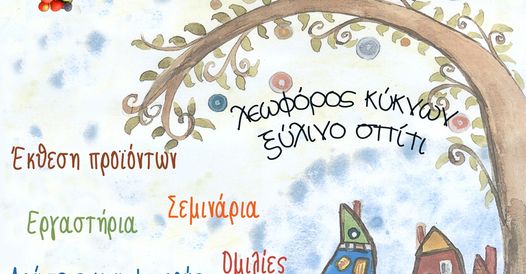 λεωφόρος κύκνων
ξύλινο σπίτι
Έκθεση προϊόντων
Σεμινάρια
Εργαστήρια
Ομιλίες